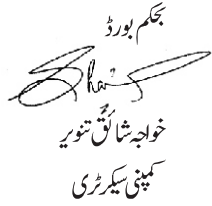 بحکم بورڈ
خواجہ شائق تنویر
کمپنی سیکرٹری